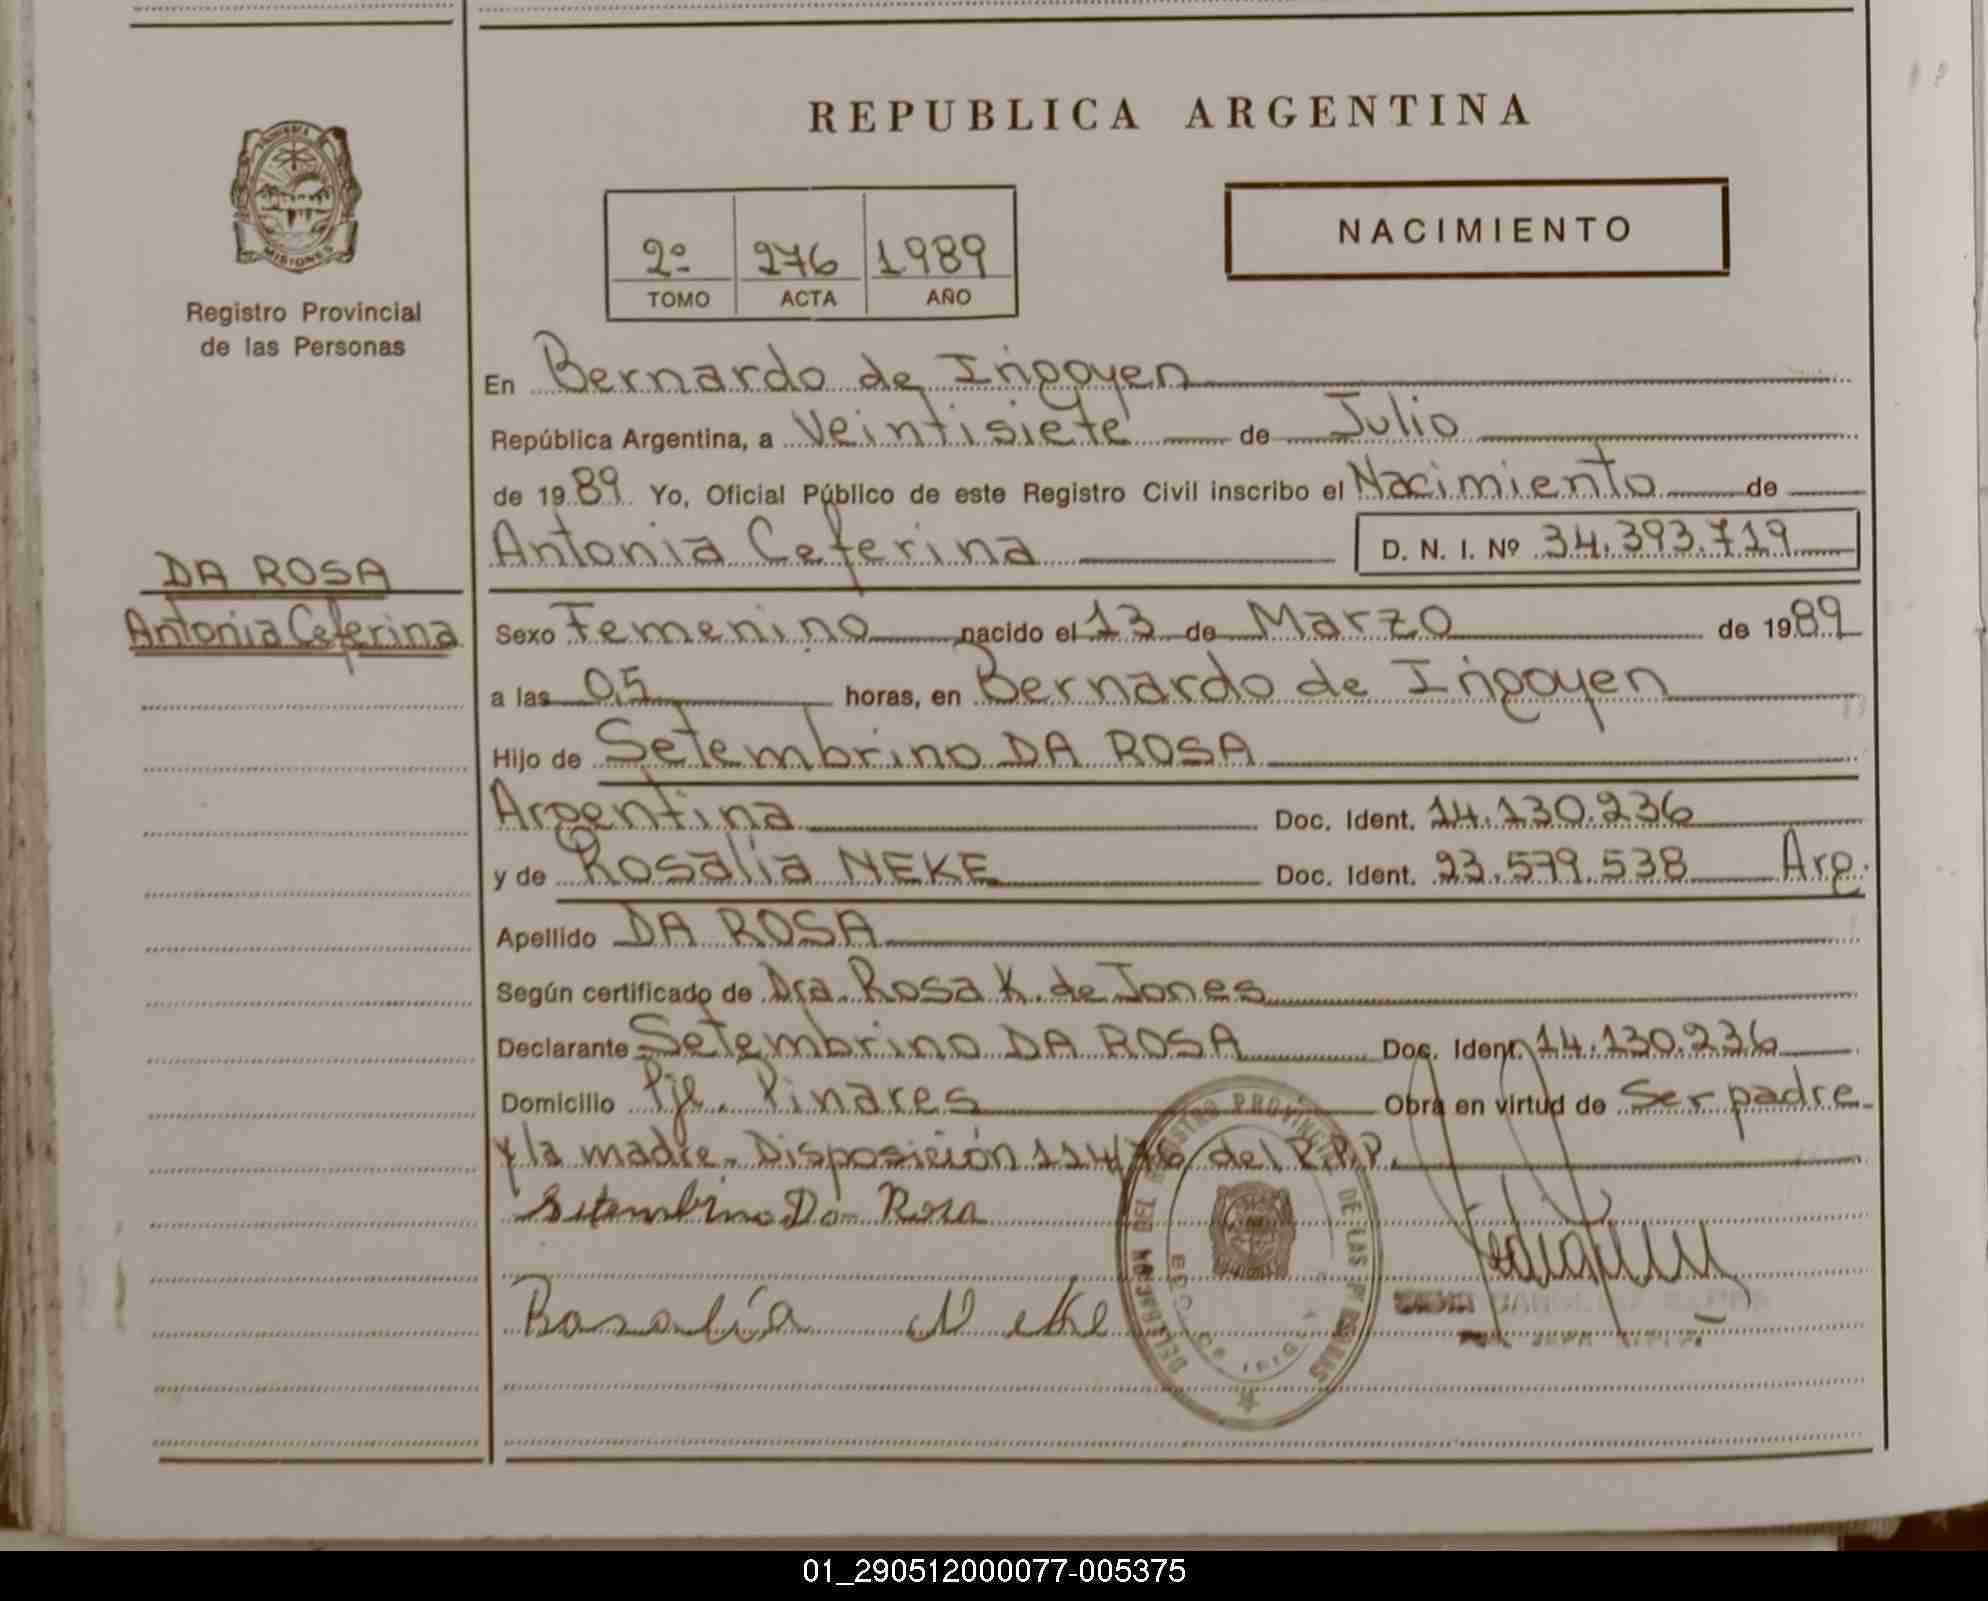 MISIONES
Registro Provincial
de las Personas
DA ROSA
Antonia Ceferina
REPUBLICA ARGENTINA
2º 276 1989
TOMO ACTA AÑO
NACIMIENTO
En Bernardo de Irigoyen
República Argentina, a Veintisiete de Julio
de 1989 Yo, Oficial Público de este Registro Civil inscribo el Nacimiento de
Antonia Ceferina D. N. I. Nº 34.393.719
Sexo Femenino nacido el 13 de Marzo de 1989
a las 05 horas, en Bernardo de Irigoyen
Hijo de Setembrino DA ROSA
Argentina Doc. Ident. 14.130.236
y de Rosalía NEKE Doc. Ident. 23.579.538 Arg.
Apellido DA ROSA
Según certificado de Dra. Rosa K. de Jones
Declarante Setembrino DA ROSA Doc. Ident. 14.130.236
Domicilio Pje. Pinares Obra en virtud de Ser padre
y la madre. Disposición 114/76 del R.P.P.
Setembrino Da Rosa
Rosalía Neke
DELEGACION DEL REGISTRO PROVINCIAL DE LAS PERSONAS
01_290512000077-005375